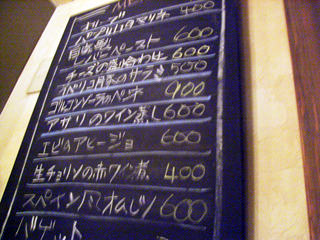 ME
オリーブ 400
パプリカのマリネ
自家製
レバーペースト 600
チーズの盛り合わせ 600
イベリコ豚のサラミ 500
ゴルゴンゾーラのペンネ 900
アサリのワイン蒸し 600
エビのアヒージョ 600
生チョリソの赤ワイン煮 400
スペイン風オムレツ 600
バゲット